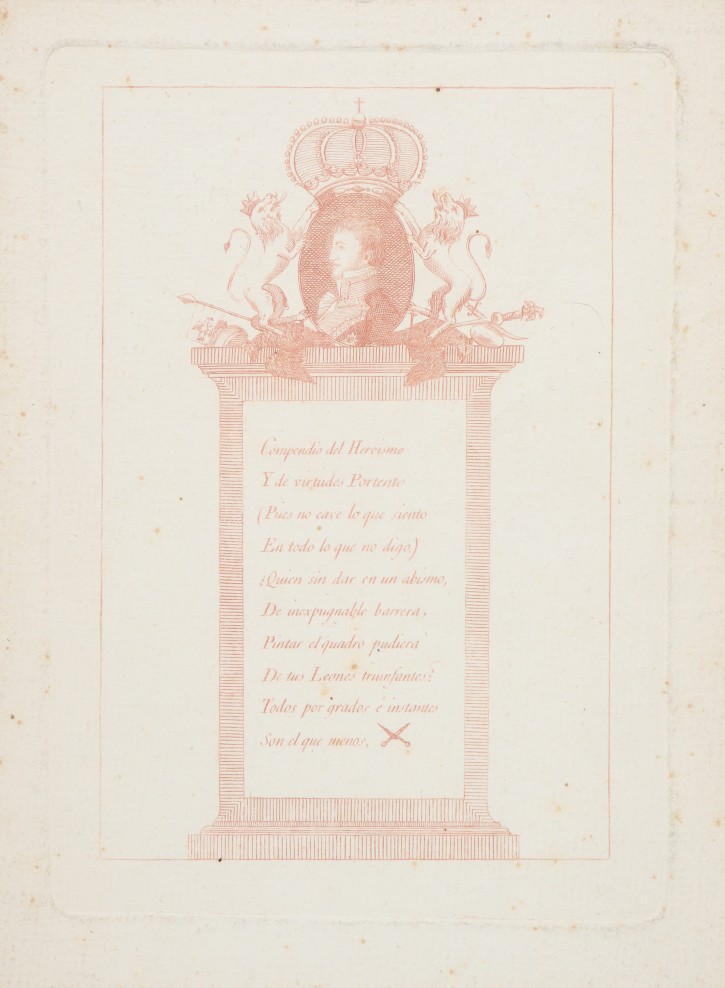 Compendio del Heroismo
Y de virtudes Portento
(Pues no cave lo que siento
En todo lo que no digo,)
¿Quien sin dar en un abismo,
De inexpugnable barrera,
Pintar el quadro pudiera
De tus Leones triunfantes?
Todos por grados é instantes
Son el que menos,